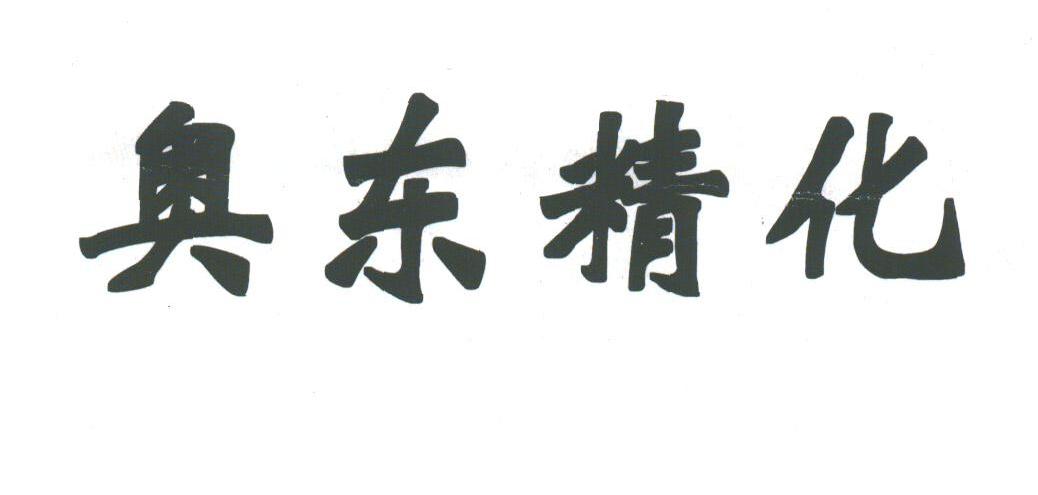 奥东精化